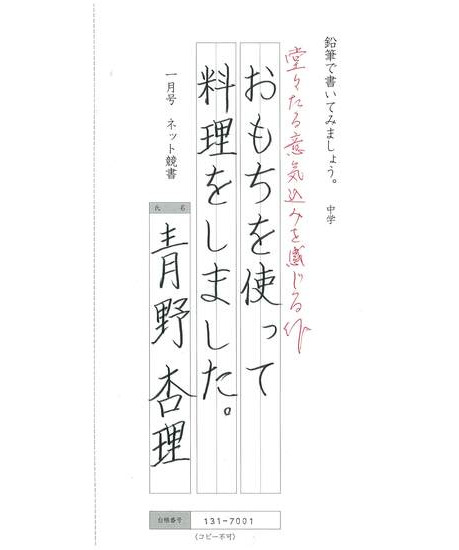 鉛筆で書いてみましょう。 中学
堂々たる意気込みを感じる作
おもちを使って
料理をしました。
一月号 ネット競書
氏名
青野 杏理
台帳番号 131-7001
(コピー不可)